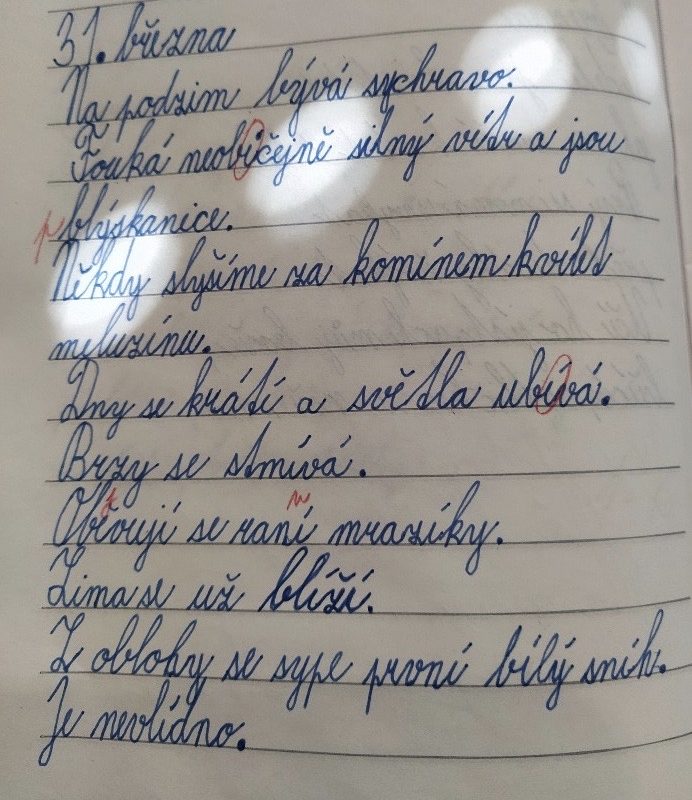 31. března
Na podzim bývá sychravo.
Fouká neobičejně silný vítr a jsou
p blýskanice.
Někdy slyšíme za komínem kvílet
meluzínu.
Dny se krátí a světla ubívá.
Brzy se stmívá.
se raní mrazíky.
Zima se už blíží.
Z oblohy se sype první bílý sníh.
Je nevlídno.